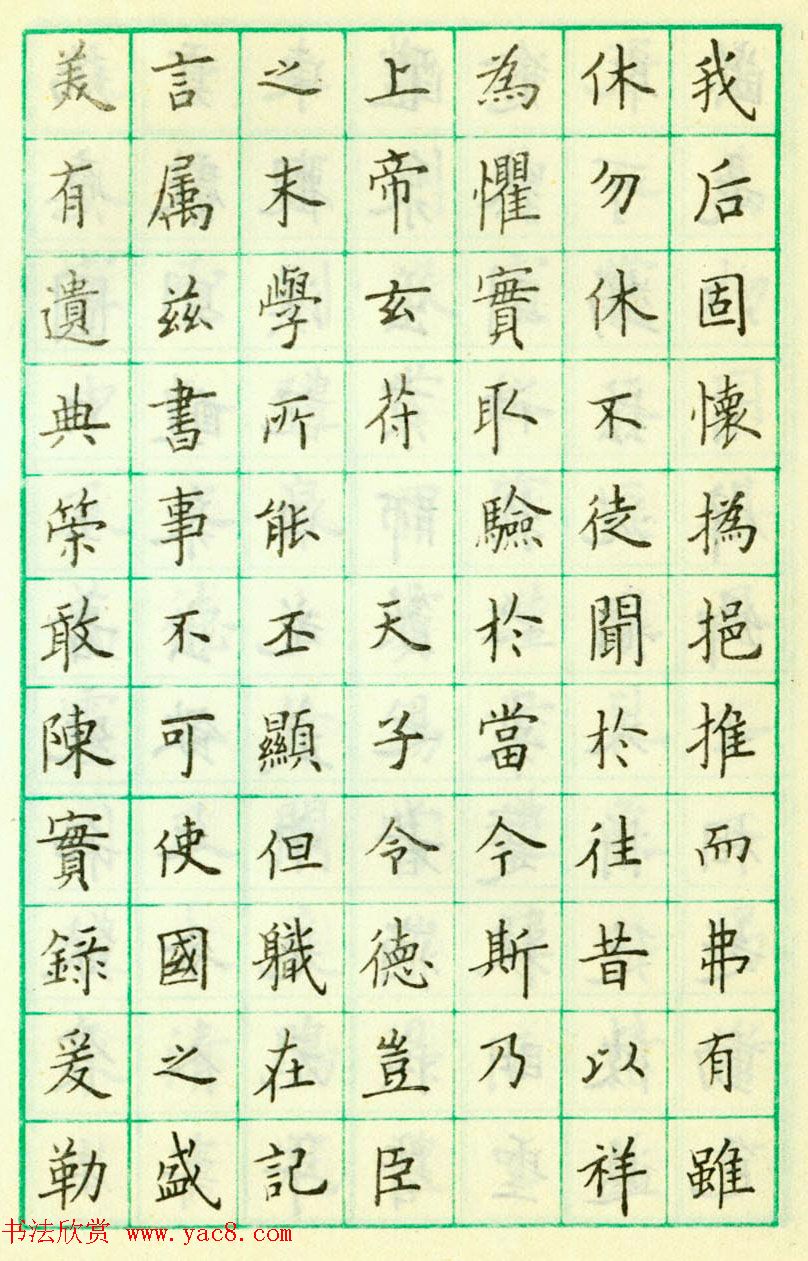 我后固懷撝挹推而弗有雖
休勿休不徒聞於往昔以祥
為懼實取驗於當今斯乃
上帝玄苻 天子令德豈臣
之末學所能丕顯但職在記
言属兹書事不可使國之盛
美有遺典策敢陳實錄爰勒
书法欣赏 www.yac8.com